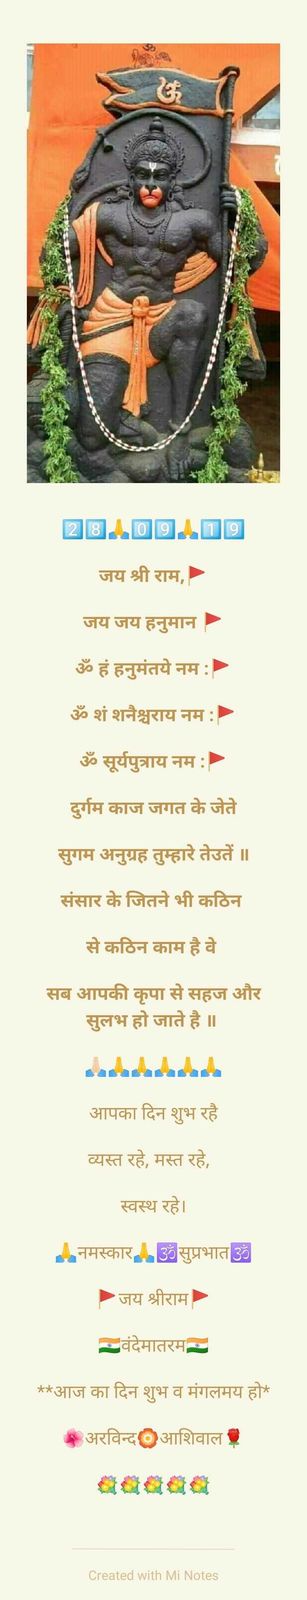 ॐ
2️⃣8️⃣🙏0️⃣9️⃣🙏1️⃣9️⃣
जय श्री राम,🚩
जय जय हनुमान 🚩
ॐ हं हनुमंतये नम :🚩
ॐ शं शनैश्चराय नम :🚩
ॐ सूर्यपुत्राय नम :🚩
दुर्गम काज जगत के जेते
सुगम अनुग्रह तुम्हारे तेउतें ॥
संसार के जितने भी कठिन
से कठिन काम है वे
सब आपकी कृपा से सहज और
सुलभ हो जाते है ॥
🙏🏻🙏🙏🙏🙏🙏
आपका दिन शुभ रहै
व्यस्त रहे, मस्त रहे,
स्वस्थ रहे।
🙏नमस्कार🙏🕉सुप्रभात🕉
🚩जय श्रीराम🚩
🇮🇳वंदेमातरम🇮🇳
**आज का दिन शुभ व मंगलमय हो*
🌺अरविन्द🏵आशिवाल🌹
💐💐💐💐💐
Created with Mi Notes